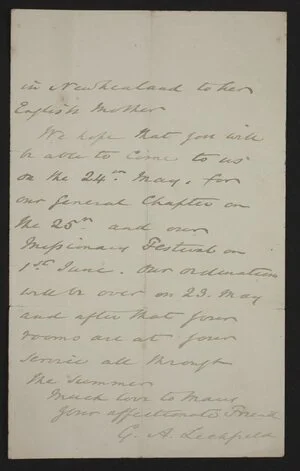 in New Zealand to her
English Mother
We hope that you will
be able to come to us
on the 24th May, for
our General Chapter on
the 25th and our
Missionary Festival on
1st June. Our ordination
will be over on 23. May
and after that your
rooms are at your
service all through
the Summer
Much love to Mary
Your affectionate Friend
G. A. Lichfield